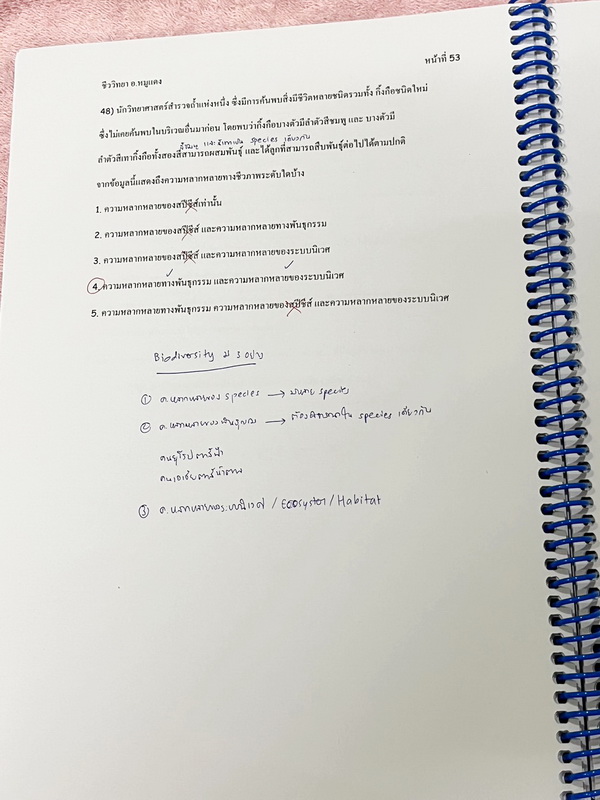 หน้าที่ 53
ชีววิทยา อ.หมูแดง
48) นักวิทยาศาสตร์สำรวจถ้ำแห่งหนึ่ง ซึ่งมีการค้นพบสิ่งมีชีวิตหลายชนิดรวมทั้ง กิ้งกือชนิดใหม่
ซึ่งไม่เคยค้นพบในบริเวณอื่นมาก่อน โดยพบว่ากิ้งกือบางตัวมีลำตัวสีชมพู และ บางตัวมี
สีชมพู และ สีเทาเป็น species เดียวกัน
ลำตัวสีเทากิ้งกือทั้งสองสีสามารถผสมพันธุ์ และได้ลูกที่สามารถสืบพันธุ์ต่อไปได้ตามปกติ
จากข้อมูลนี้แสดงถึงความหลากหลายทางชีวภาพระดับใดบ้าง
1. ความหลากหลายของสปีชีส์เท่านั้น
2. ความหลากหลายของสปีชีส์ และความหลากหลายทางพันธุกรรม
3. ความหลากหลายของสปีชีส์ และความหลากหลายของระบบนิเวศ
4. ความหลากหลายทางพันธุกรรม และความหลากหลายของระบบนิเวศ
5. ความหลากหลายทางพันธุกรรม ความหลากหลายของสปีชีส์ และความหลากหลายของระบบนิเวศ
Biodiversity มี 3 แบบ
① ค.หลากหลายของ species → มีหลาย species
② ค.หลากหลายของพันธุกรรม → ต้องคิดภายใน species เดียวกัน
คนยุโรปตาสีฟ้า
คนเอเชียตาสีน้ำตาล
③ ค.หลากหลายของระบบนิเวศ / Ecosystem / Habitat